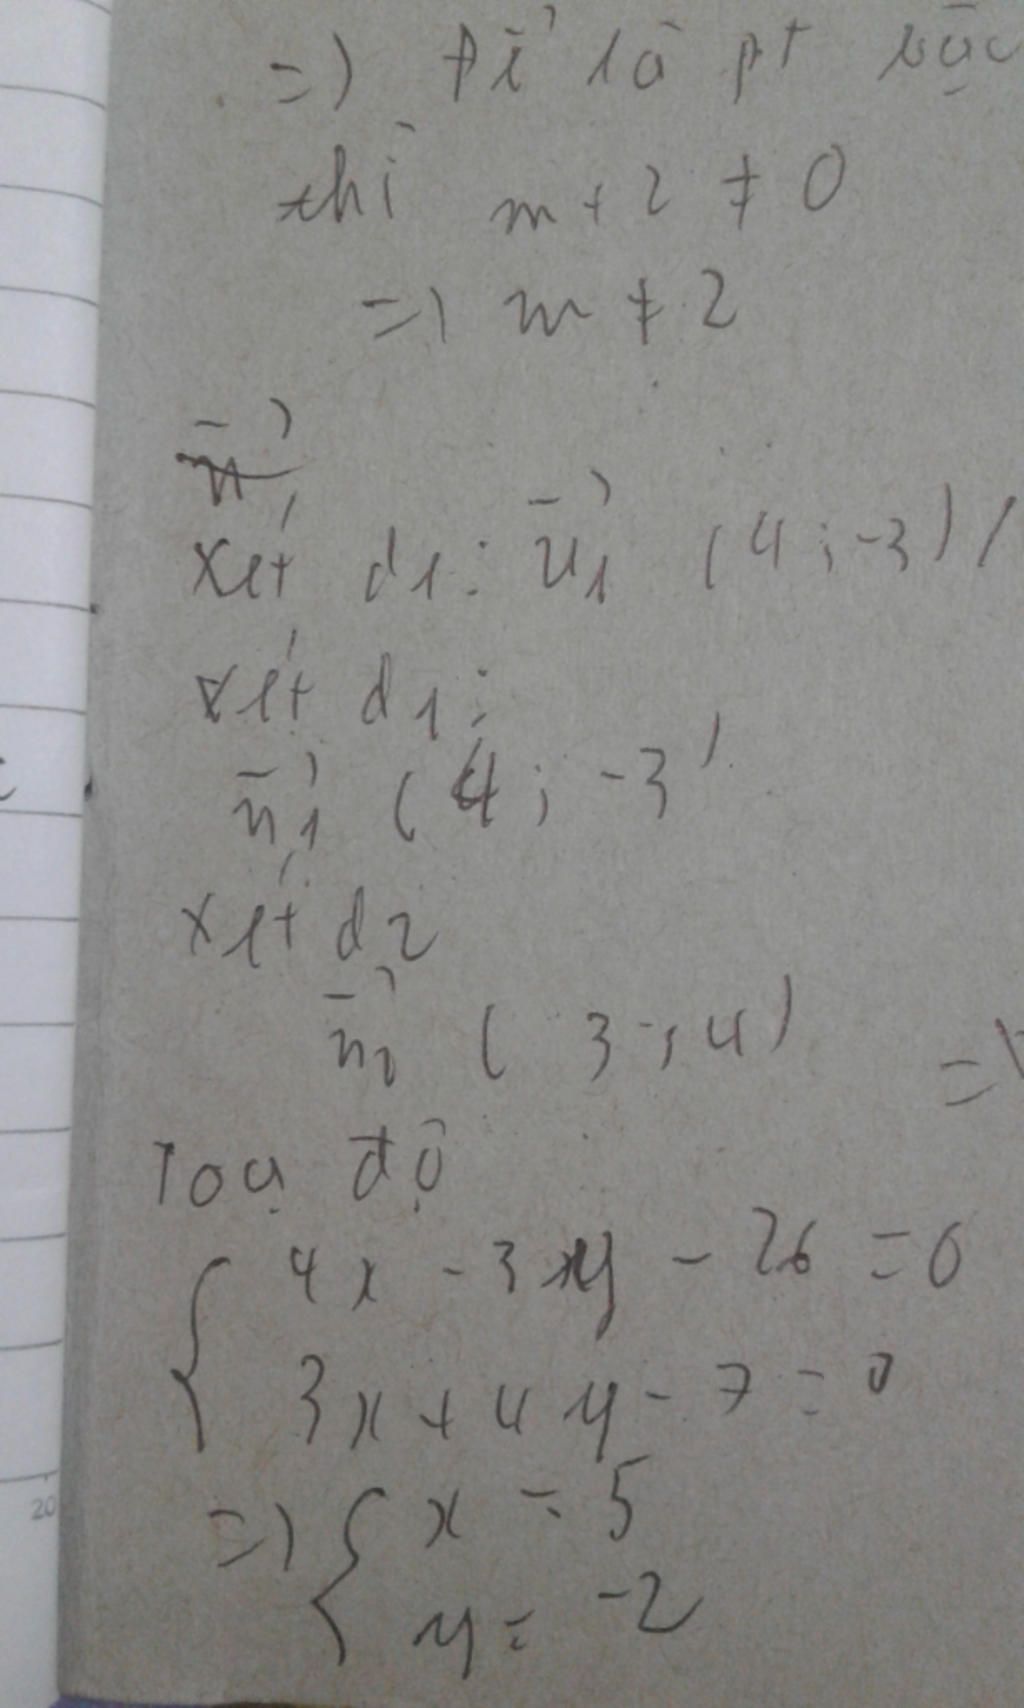 =) Để là pt bậc
thì m + 2 ≠ 0
=) m ≠ 2
xét d1: u1 (4; -3) /
xét d1:
n1 (4; -3)
xét d2
n2 (3; 4) =)
Toạ độ
4x - 3y - 26 = 0
3x + 4y - 7 = 0
=) { x = 5
y = -2
20